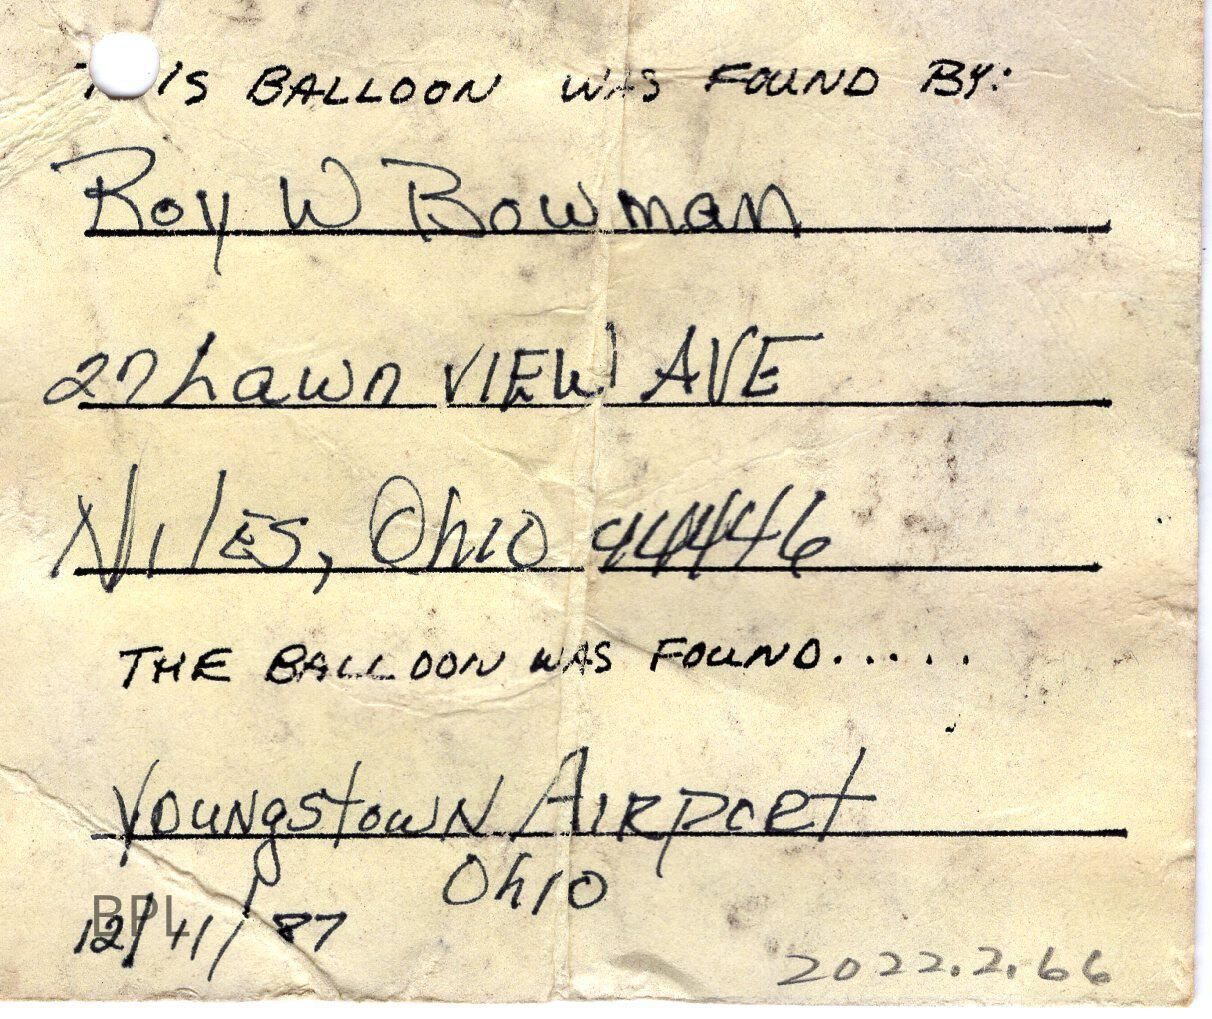 THIS BALLOON WAS FOUND BY:
Roy W Bowman
27 Lawn VIEW AVE
Niles, Ohio 44446
THE BALLOON WAS FOUND.....
Youngstown AIRport
Ohio
BPL
87
2022.2.66